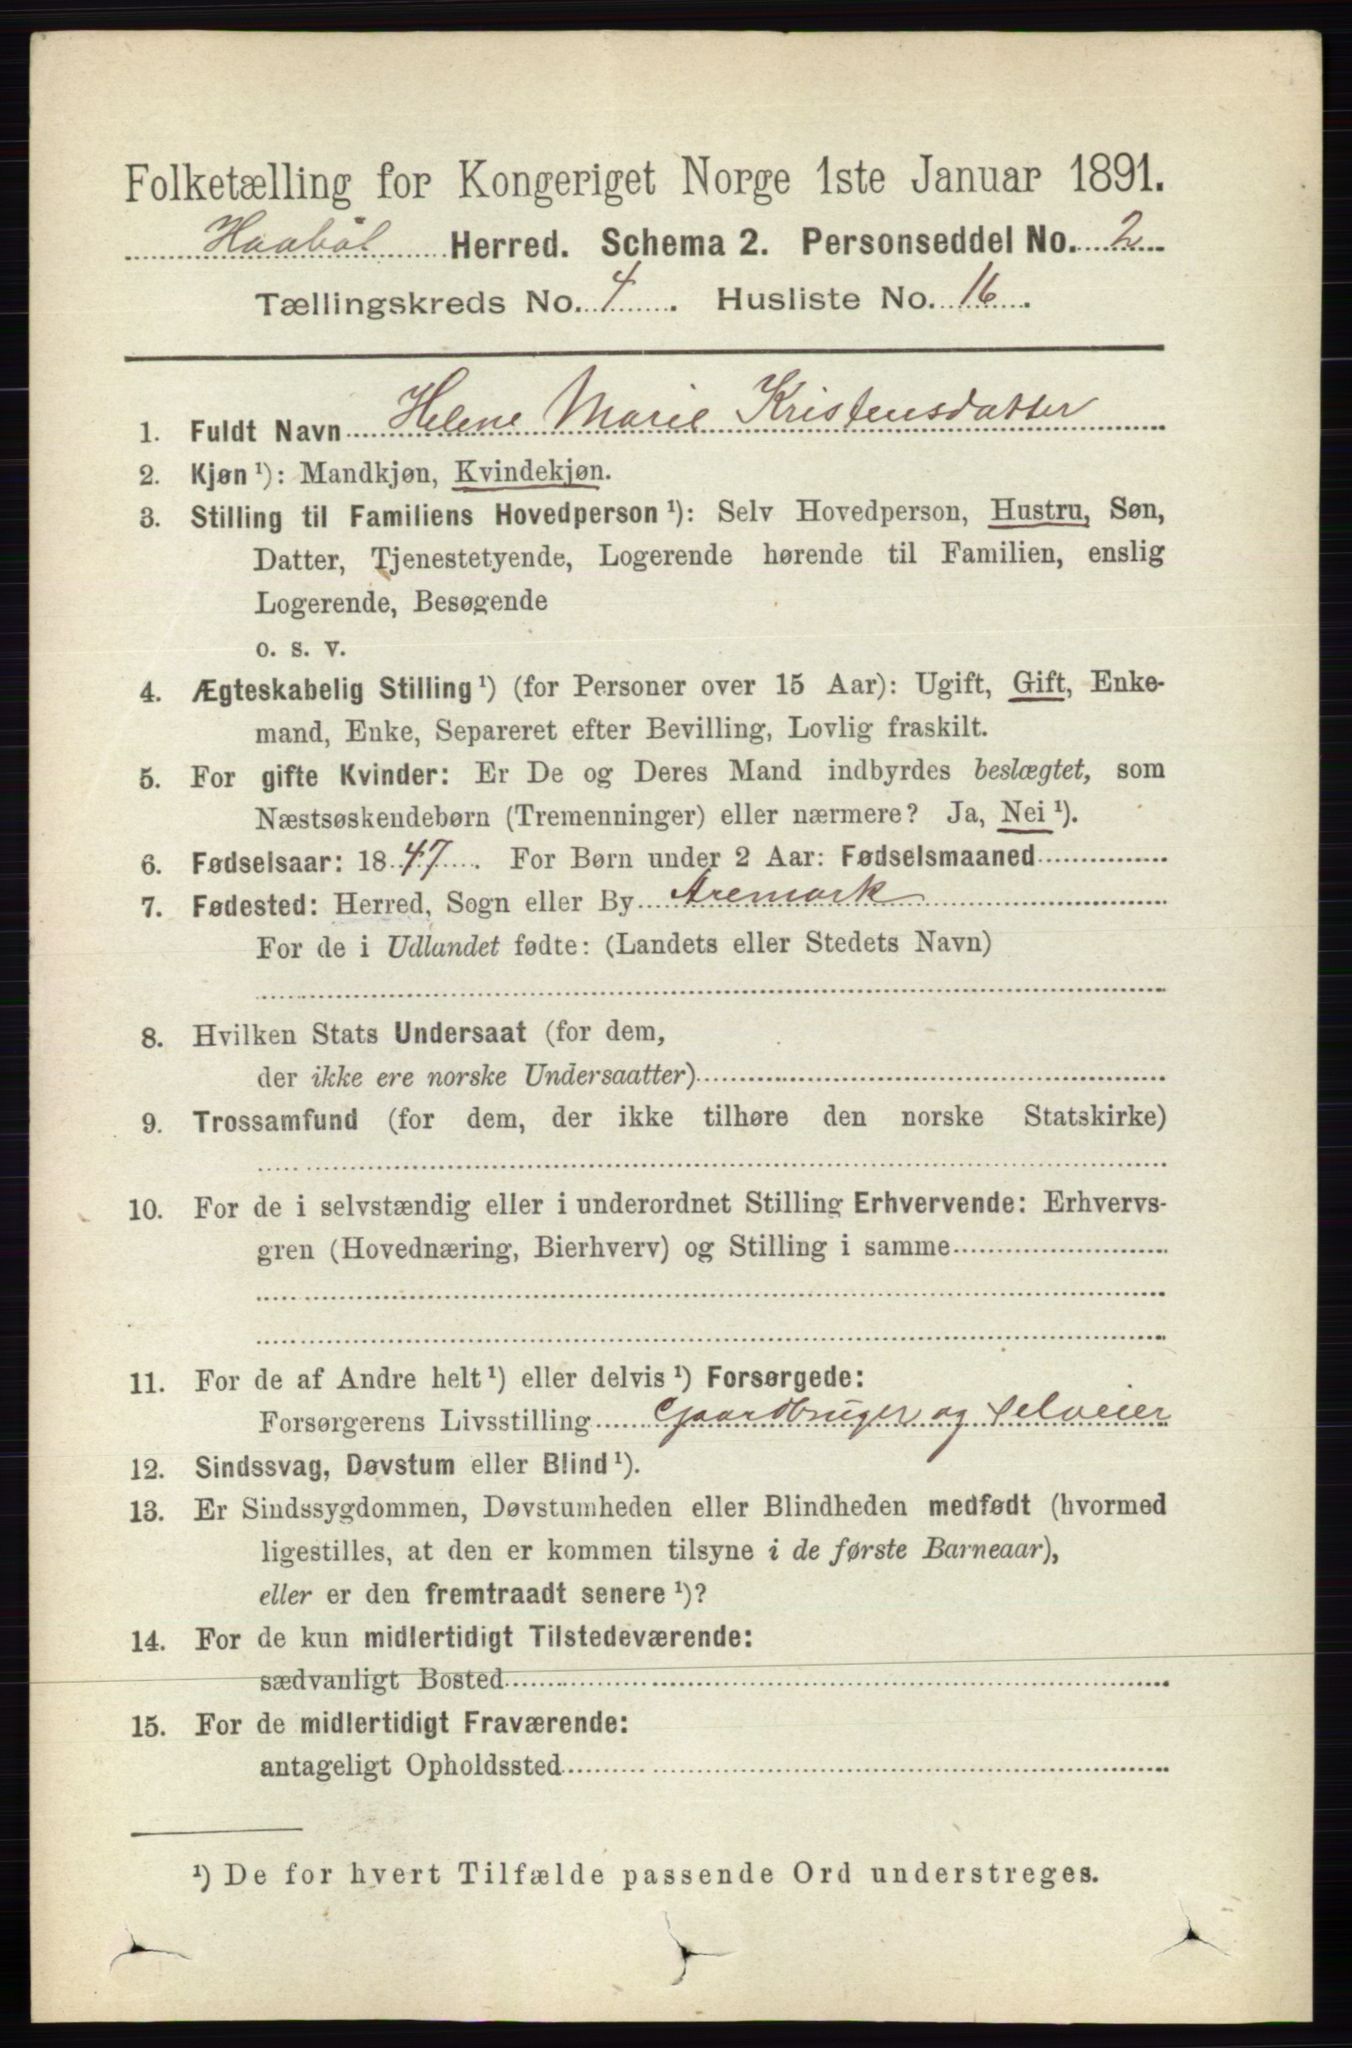 Folketælling for Kongeriget Norge 1ste Januar 1891.
Haabøl Herred. Schema 2. Personseddel No. 2
Tællingskreds No. 4. Husliste No. 16.
1. Fuldt Navn Helene Marie Kristensdatter
2. Kjøn ¹): Mandkjøn, Kvindekjøn.
3. Stilling til Familiens Hovedperson ¹): Selv Hovedperson, Hustru, Søn,
Datter, Tjenestetyende, Logerende hørende til Familien, enslig
Logerende, Besøgende
o. s. v.
4. Ægteskabelig Stilling ¹) (for Personer over 15 Aar): Ugift, Gift, Enke-
mand, Enke, Separeret efter Bevilling, Lovlig fraskilt.
5. For gifte Kvinder: Er De og Deres Mand indbyrdes beslægtet, som
Næstsøskendebørn (Tremenninger) eller nærmere? Ja, Nei ¹).
6. Fødselsaar: 1847. For Børn under 2 Aar: Fødselsmaaned
7. Fødested: Herred, Sogn eller By Aremark
For de i Udlandet fødte: (Landets eller Stedets Navn)
8. Hvilken Stats Undersaat (for dem,
der ikke ere norske Undersaatter)
9. Trossamfund (for dem, der ikke tilhøre den norske Statskirke)
10. For de i selvstændig eller i underordnet Stilling Erhvervende: Erhvervs-
gren (Hovednæring, Bierhverv) og Stilling i samme
11. For de af Andre helt ¹) eller delvis ¹) Forsørgede:
Forsørgerens Livsstilling Gaardbruger og selveier
12. Sindssvag, Døvstum eller Blind ¹).
13. Er Sindssygdommen, Døvstumheden eller Blindheden medfødt (hvormed
ligestilles, at den er kommen tilsyne i de første Barneaar),
eller er den fremtraadt senere ¹)?
14. For de kun midlertidigt Tilstedeværende:
sædvanligt Bosted
15. For de midlertidigt Fraværende:
antageligt Opholdssted
¹) De for hvert Tilfælde passende Ord understreges.